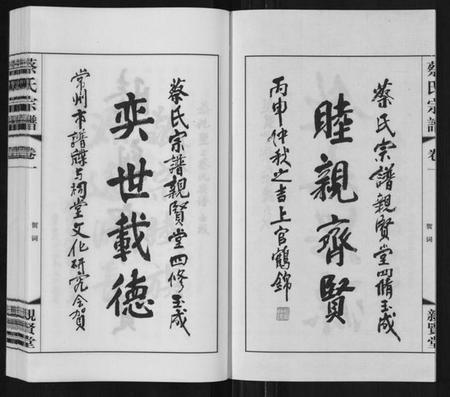 蔡氏宗譜
卷一
賀词
親賢堂
蔡氏宗譜親賢堂四脩玉成
睦親齊賢
丙申仲秋之吉上官鶴錦
蔡氏宗譜親賢堂四修玉成
奕世載德
常州市譜牒与祠堂文化研究会賀
蔡氏宗譜
卷一
賀词
親賢堂